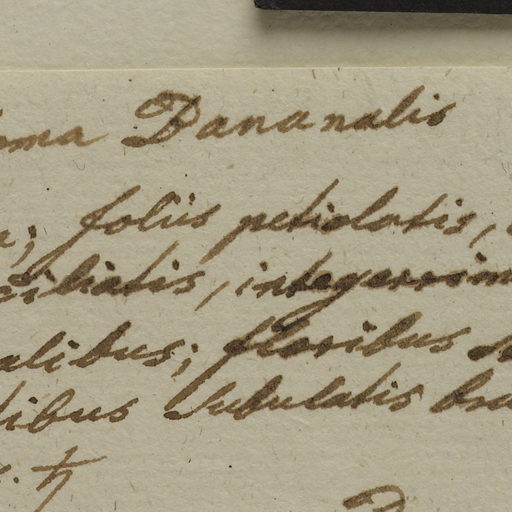 Dananalis
foliis petiolatis,
ciliatis, integerrim
alibus; floribus
libus subulatis bra
♄